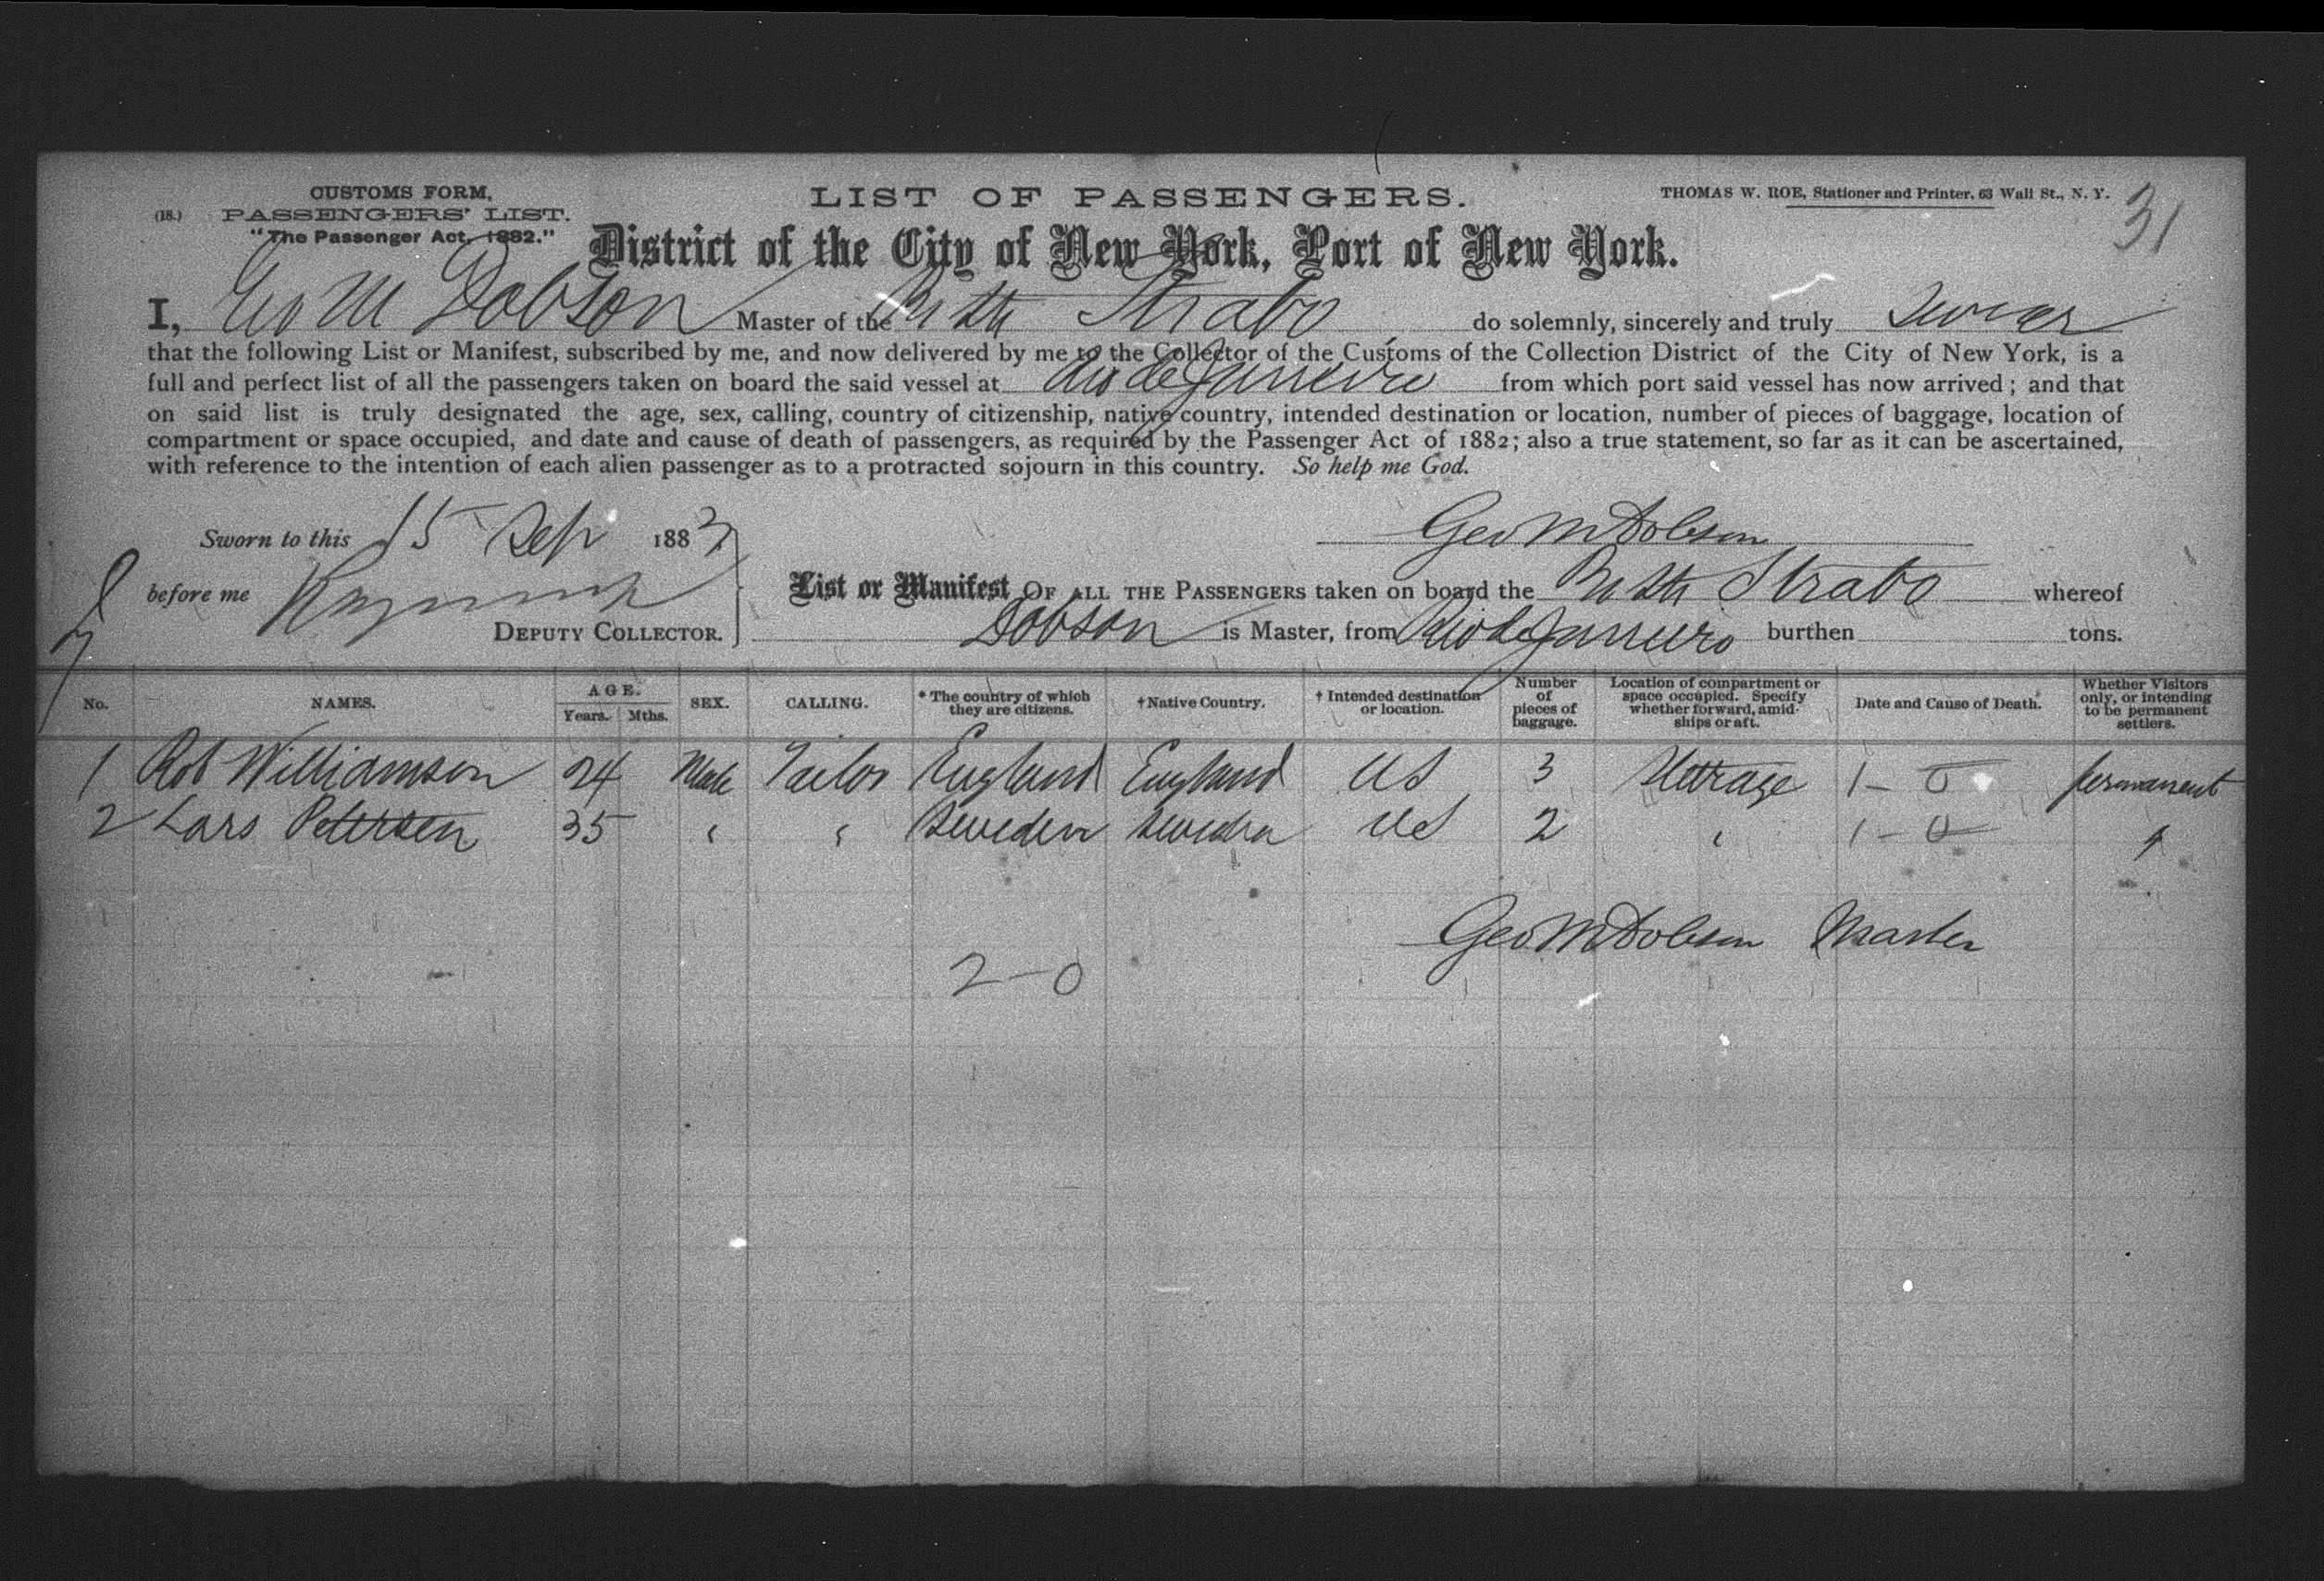 CUSTOMS FORM,
(18.) PASSENGERS' LIST.
"The Passenger Act, 1882."
LIST OF PASSENGERS.
THOMAS W. ROE, Stationer and Printer, 63 Wall St., N. Y.
31
District of the City of New York, Port of New York.
I, Geo M Dobson Master of the Br Str Strabo do solemnly, sincerely and truly swear
that the following List or Manifest, subscribed by me, and now delivered by me to the Collector of the Customs of the Collection District of the City of New York, is a
full and perfect list of all the passengers taken on board the said vessel at Rio de Janneiro from which port said vessel has now arrived; and that
on said list is truly designated the age, sex, calling, country of citizenship, native country, intended destination or location, number of pieces of baggage, location of
compartment or space occupied, and date and cause of death of passengers, as required by the Passenger Act of 1882; also a true statement, so far as it can be ascertained,
with reference to the intention of each alien passenger as to a protracted sojourn in this country. So help me God.
Sworn to this 15 Sep 1883 Geo M Dobson
before me
DEPUTY COLLECTOR.
List or Manifest OF ALL THE PASSENGERS taken on board the Br Str Strabo whereof
Dobson is Master, from Rio de Janneiro burthen tons.
No. NAMES. AGE. Years. Mths. SEX. CALLING. * The country of which they are citizens. † Native Country. † Intended destination or location. Number of pieces of baggage. Location of compartment or space occupied. Specify whether forward, amidships or aft. Date and Cause of Death. Whether Visitors only, or intending to be permanent settlers.
1 Rob Williamson 24 Male Tailor England England US 3 Steerage 1 - 0 permanent
2 Lars Petersen 35 " " Sweden Sweden US 2 " 1 - 0 "
Geo M Dobson Master
2-0